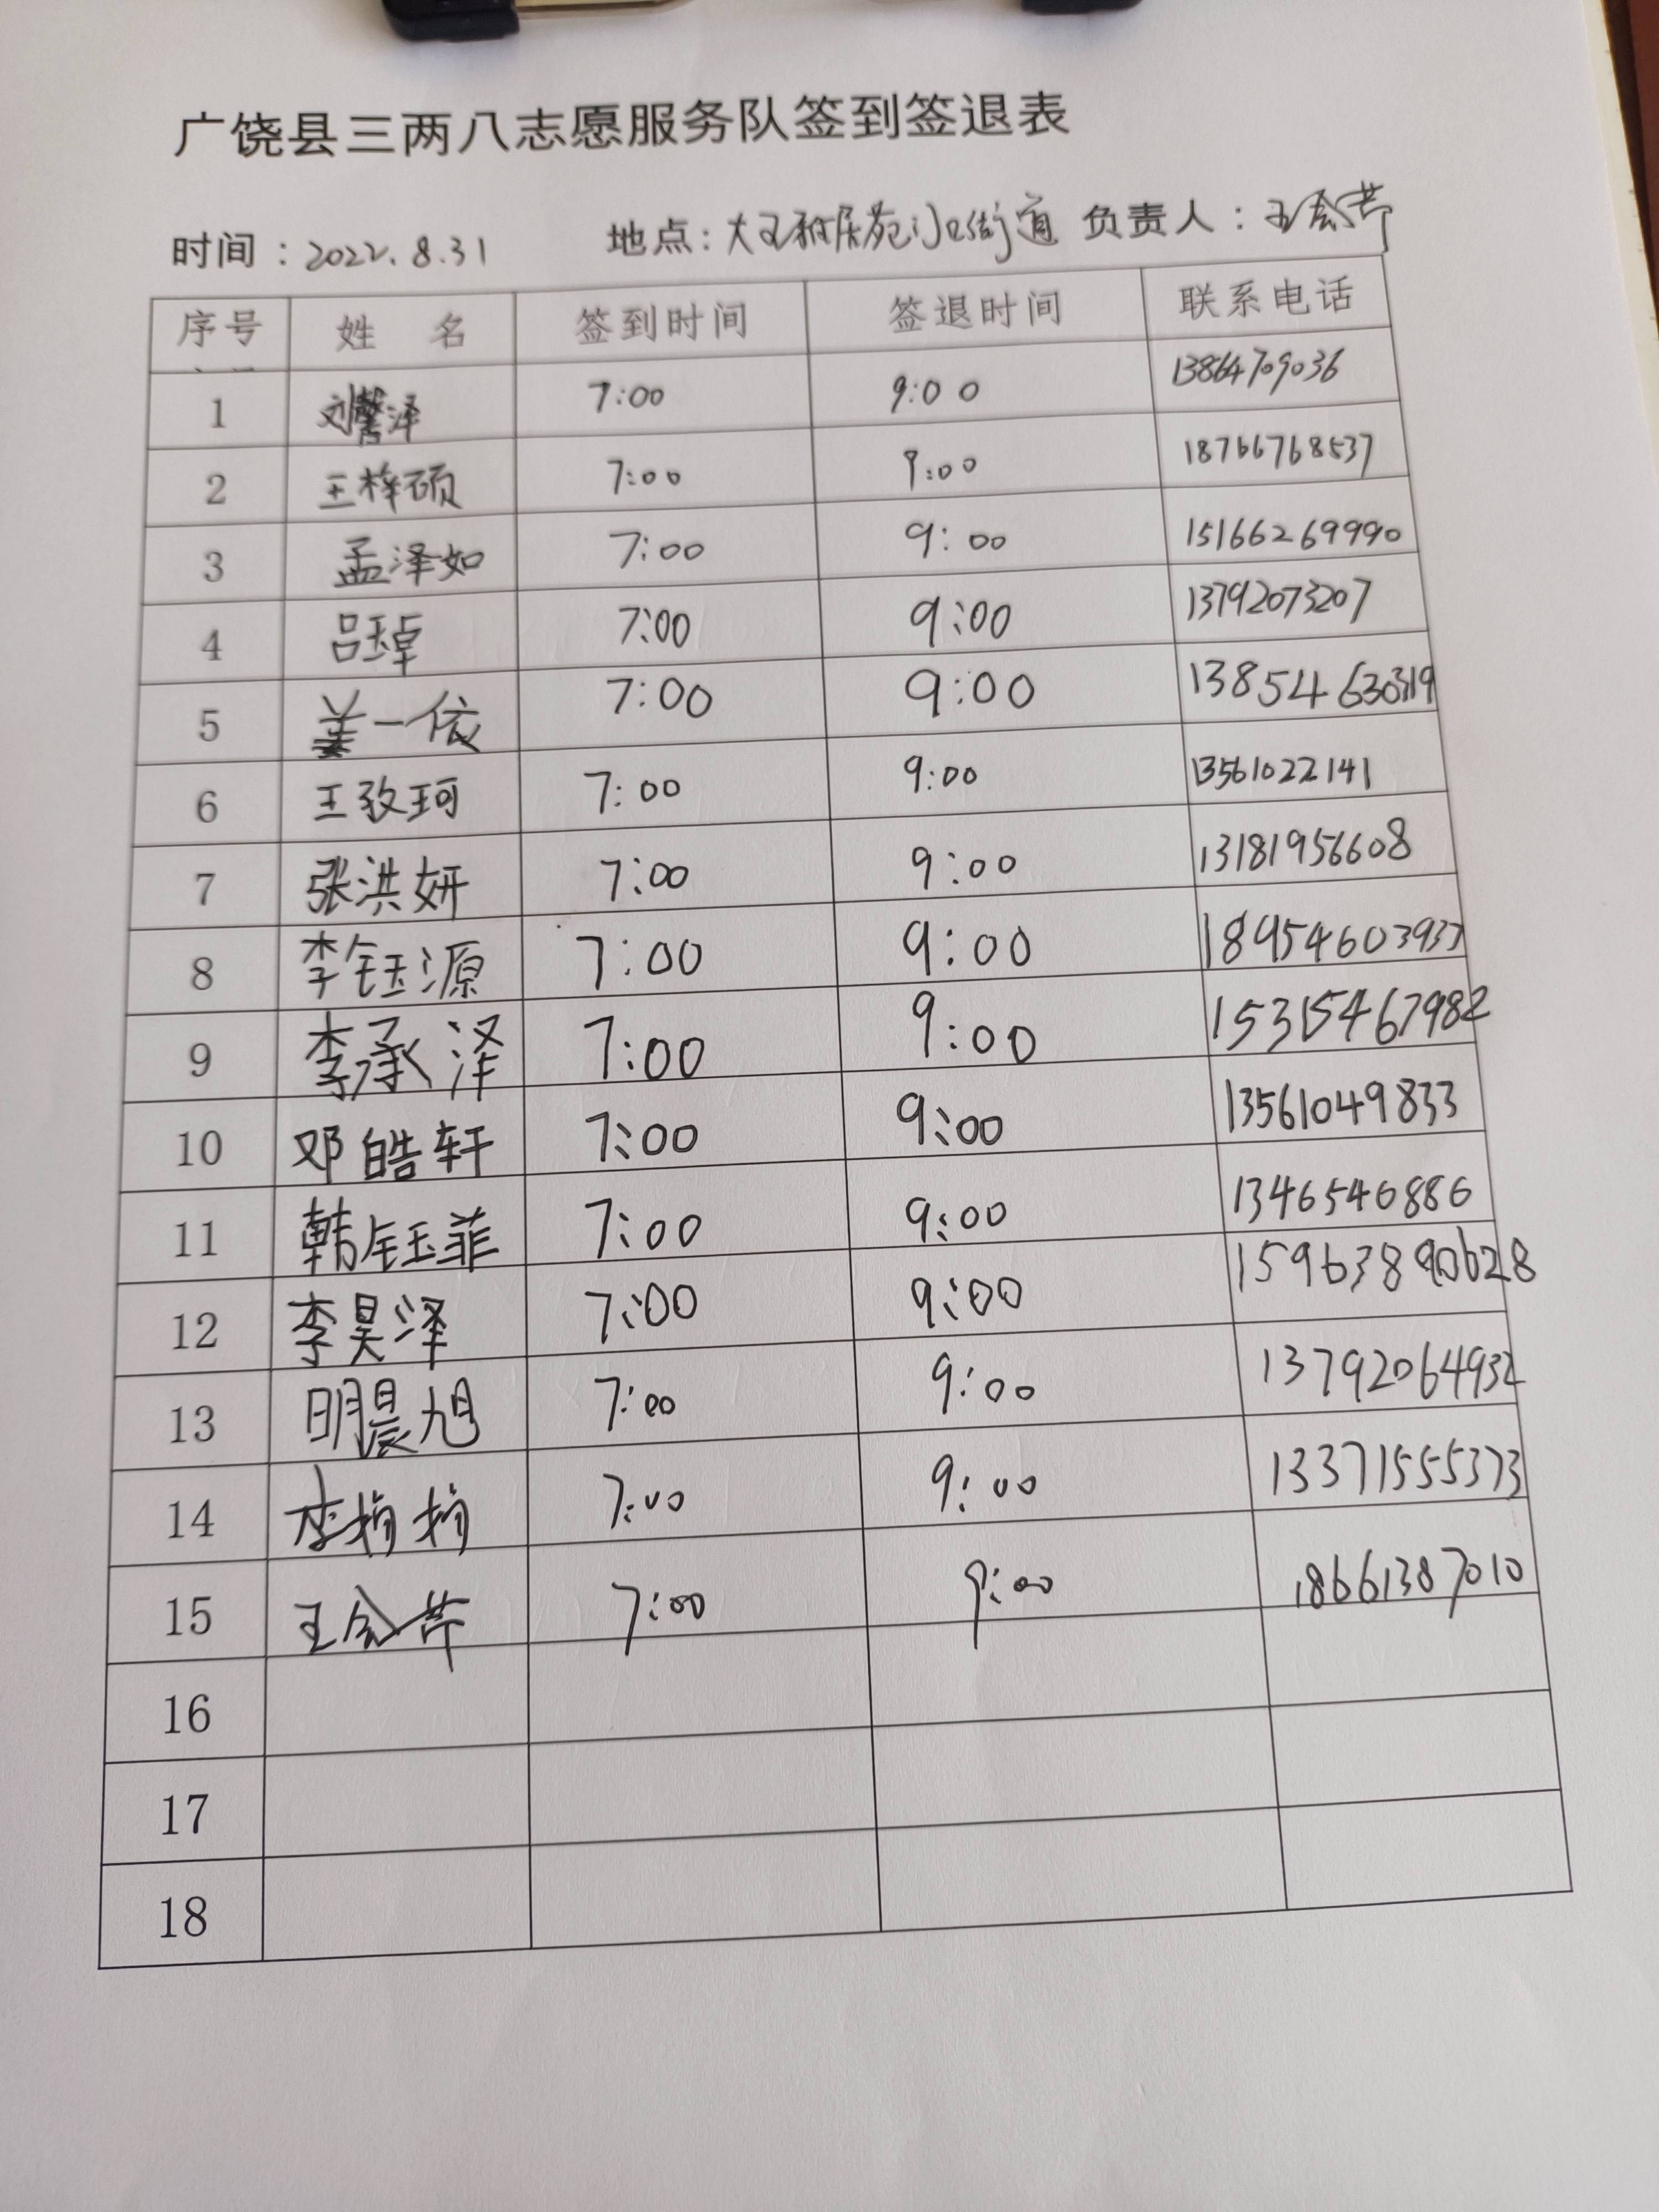 广饶县三两八志愿服务队签到签退表
时间：2022.8.31 地点：大王雅居苑门口街道 负责人：王会芹
序号 姓 名 签到时间 签退时间 联系电话
1 刘馨泽 7:00 9:00 13864709036
2 王梓硕 7:00 9:00 18766768537
3 孟泽如 7:00 9:00 15166269990
4 吕玉卓 7:00 9:00 13792073207
5 姜一依 7:00 9:00
6 王孜珂 7:00 9:00 13561022141
7 张洪妍 7:00 9:00 13181956608
8 李钰源 7:00 9:00 18954603937
9 李承泽 7:00 9:00 15315467982
10 邓皓轩 7:00 9:00 13561049833
11 韩钰菲 7:00 9:00 1346546886
12 李昊泽 7:00 9:00
13 明晨旭 7:00 9:00 13792064932
14 李 7:00 9:00 13371555373
15 王会芹 7:00 9:00 18661387010
16
17
18